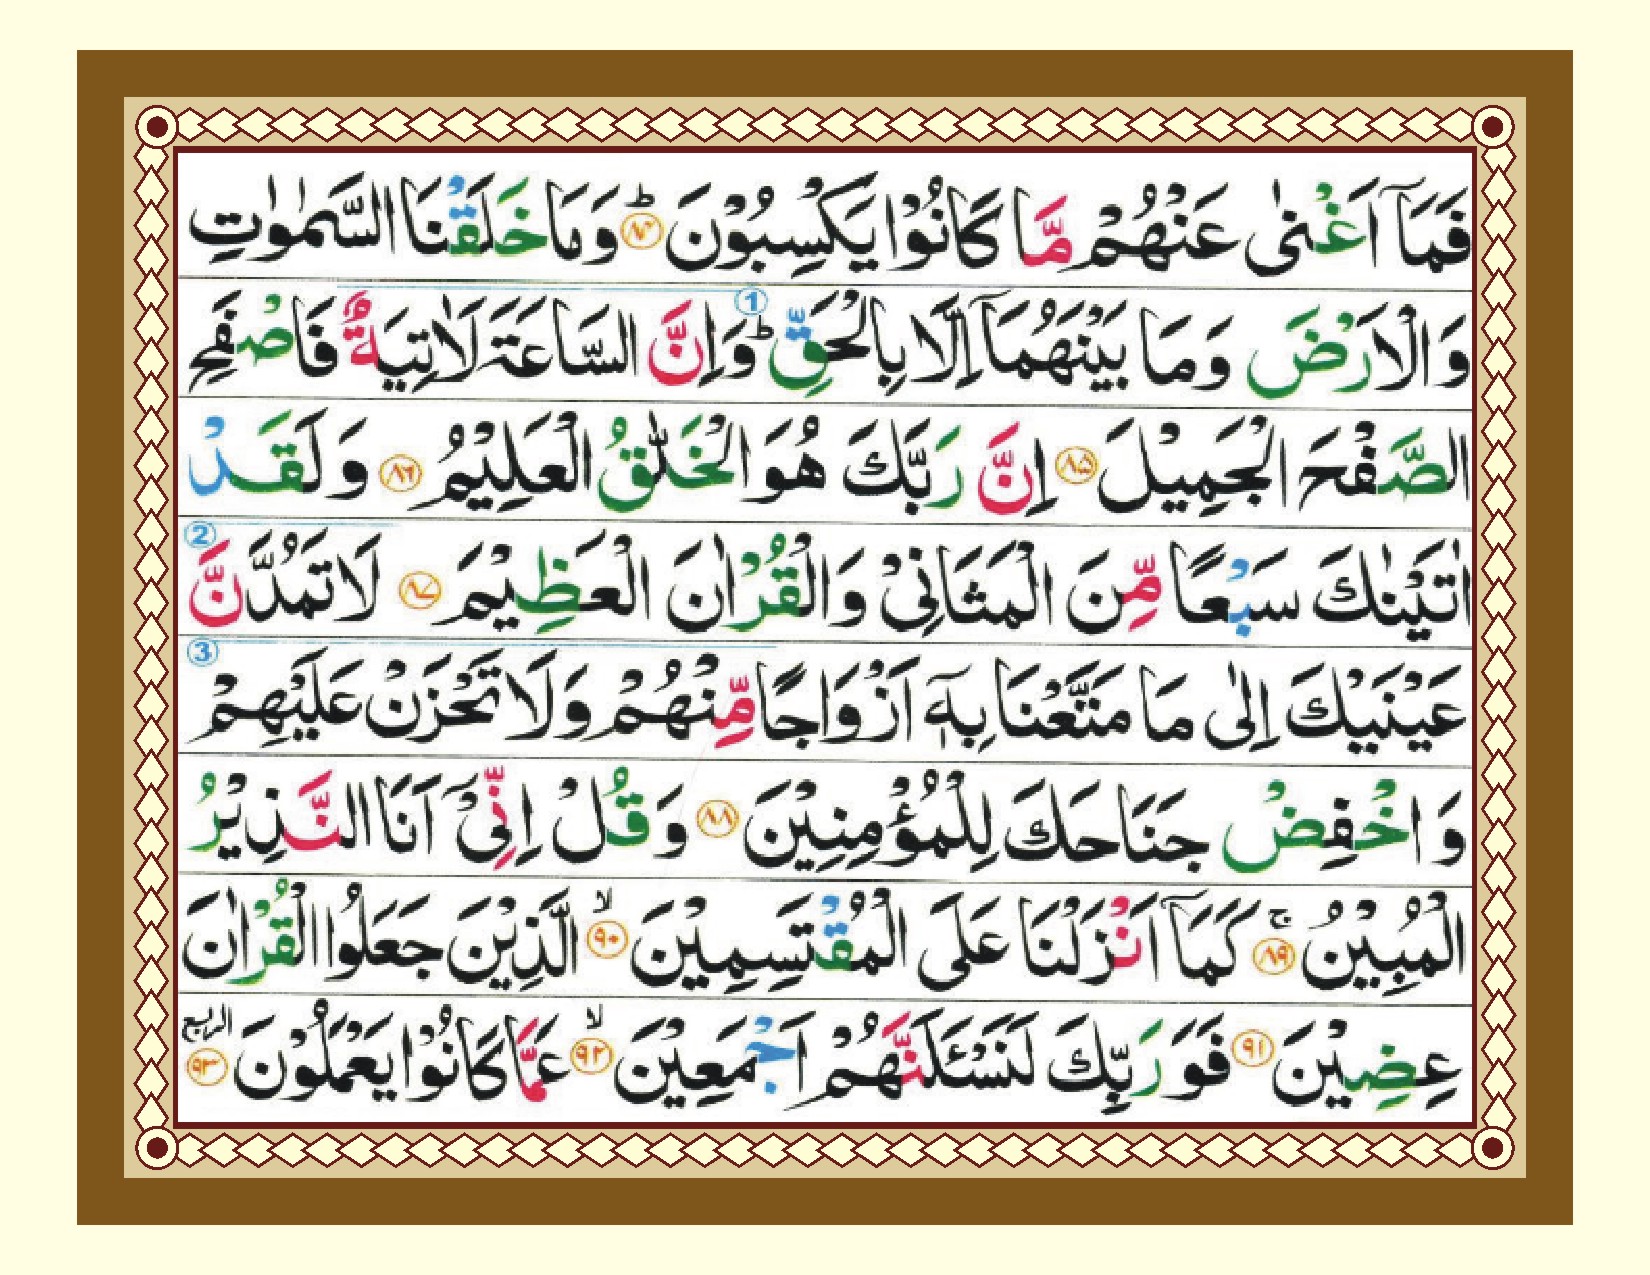 فَمَآ اَغْنٰی عَنْهُمْ مَّا كَانُوْا يَكْسِبُوْنَ ؕ ﴿۸۴﴾ وَمَا خَلَقْنَا السَّمٰوٰتِ
وَالْاَرْضَ وَمَا بَيْنَهُمَآ اِلَّا بِالْحَقِّ ؕ ① وَاِنَّ السَّاعَةَ لَاٰتِيَةٌ فَاصْفَحِ
الصَّفْحَ الْجَمِيْلَ ﴿۸۵﴾ اِنَّ رَبَّكَ هُوَ الْخَلّٰقُ الْعَلِيْمُ ﴿۸۶﴾ وَلَقَدْ
② اٰتَيْنٰكَ سَبْعًا مِّنَ الْمَثَانِيْ وَالْقُرْاٰنَ الْعَظِيْمَ ﴿۸۷﴾ لَا تَمُدَّنَّ
③ عَيْنَيْكَ اِلٰی مَا مَتَّعْنَا بِهٖٓ اَزْوَاجًا مِّنْهُمْ وَلَا تَحْزَنْ عَلَيْهِمْ
وَاخْفِضْ جَنَاحَكَ لِلْمُؤْمِنِيْنَ ﴿۸۸﴾ وَقُلْ اِنِّيْٓ اَنَا النَّذِيْرُ
الْمُبِيْنُ ۚ ﴿۸۹﴾ كَمَآ اَنْزَلْنَا عَلَی الْمُقْتَسِمِيْنَ ۙ ﴿۹۰﴾ الَّذِيْنَ جَعَلُوا الْقُرْاٰنَ
عِضِيْنَ ﴿۹۱﴾ فَوَرَبِّكَ لَنَسْـَٔلَنَّهُمْ اَجْمَعِيْنَ ۙ ﴿۹۲﴾ عَمَّا كَانُوْا يَعْمَلُوْنَ ﴿۹۳﴾ الربع